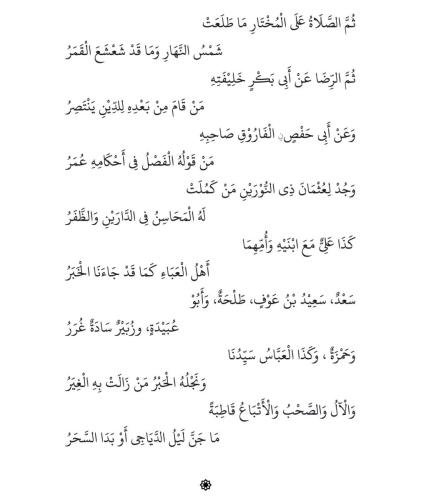 ثُمَّ الصَّلَاةُ عَلَى الْمُخْتَارِ مَا طَلَعَتْ
شَمْسُ النَّهَارِ وَمَا قَدْ شَعْشَعَ الْقَمَرُ
ثُمَّ الرِّضَا عَنْ أَبِي بَكْرٍ خَلِيْفَتِهِ
مَنْ قَامَ مِنْ بَعْدِهِ لِلدِّيْنِ يَنْتَصِرُ
وَعَنْ أَبِي حَفْصٍ الْفَارُوْقِ صَاحِبِهِ
مَنْ قَوْلُهُ الْفَصْلُ فِي أَحْكَامِهِ عُمَرُ
وَجُدْ لِعُثْمَانَ ذِي النُّوْرَيْنِ مَنْ كَمُلَتْ
لَهُ الْمَحَاسِنُ فِي الدَّارَيْنِ وَالظَّفَرُ
كَذَا عَلِيٌّ مَعَ ابْنَيْهِ وَأُمِّهِمَا
أَهْلُ الْعَبَاءِ كَمَا قَدْ جَاءَنَا الْخَبَرُ
سَعْدٌ، سَعِيْدُ بْنُ عَوْفٍ، طَلْحَةٌ، وَأَبُوْ
عُبَيْدَةٍ، وزُبَيْرٌ سَادَةٌ غُرَرُ
وَحَمْزَةٌ ، وَكَذَا الْعَبَّاسُ سَيِّدُنَا
وَنَجْلُهُ الْحَبْرُ مَنْ زَالَتْ بِهِ الْغِيَرُ
وَالْآلُ وَالصَّحْبُ وَالْأَتْبَاعُ قَاطِبَةً
مَا جَنَّ لَيْلُ الدَّيَاجِي أَوْ بَدَا السَّحَرُ